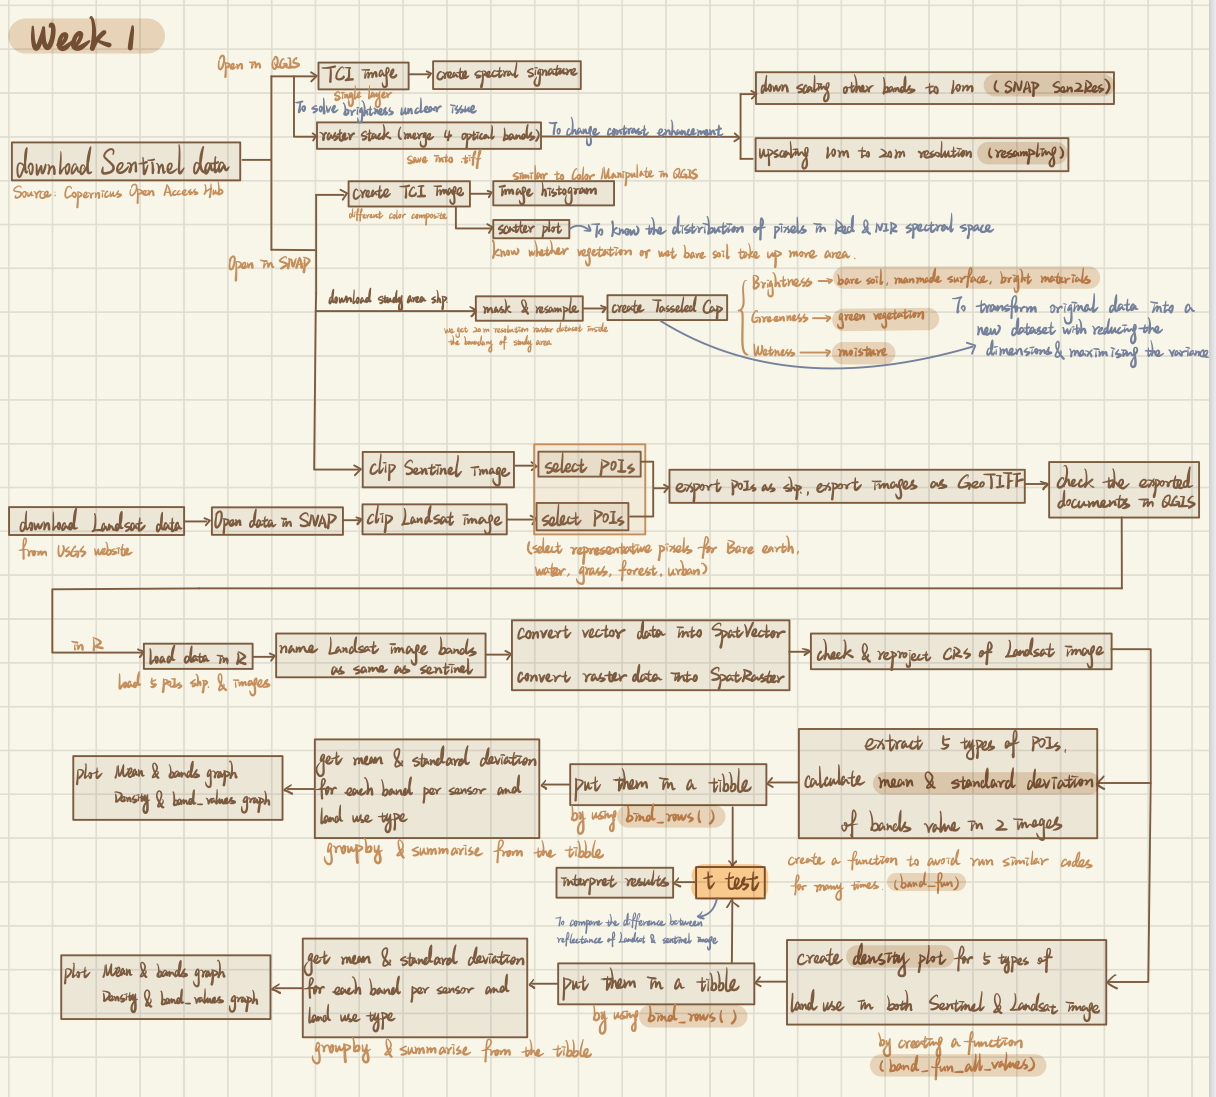 Week 1
Open in QGIS
TCI image
create spectral signature
Single layer
To solve brightness unclear issue
raster stack (merge 4 optical bands)
save into .tiff
To change contrast enhancement
down scaling other bands to 10m (SNAP Sen2Res)
upscaling 10m to 20m resolution (resampling)
download Sentinel data
Source: Copernicus Open Access Hub
Open in SNAP
create TCI image
different color composite
similar to Color Manipulate in QGIS
Image histogram
scatter plot
To know the distribution of pixels in Red & NIR spectral space
know whether vegetation or wet bare soil take up more area.
download study area shp.
mask & resample
we get 20m resolution raster dataset inside
the boundary of study area
create Tasseled Cap
Brightness
bare soil, manmade surface, bright materials
Greenness
green vegetation
Wetness
moisture
To transform original data into a
new dataset with reducing the
dimensions & maximising the variance
clip Sentinel image
select POIs
download Landsat data
from USGS website
Open data in SNAP
clip Landsat image
select POIs
(select representative pixels for Bare earth,
water, grass, forest, urban)
export POIs as shp., export images as GeoTIFF
check the exported
documents in QGIS
in R
load data in R
load 5 POIs shp. & images
name Landsat image bands
as same as sentinel
convert vector data into SpatVector
convert raster data into SpatRaster
check & reproject CRs of Landsat image
extract 5 types of POIs,
calculate mean & standard deviation
of bands value in 2 images
create a function to avoid run similar codes
for many times (band_fun)
put them in a tibble
by using bind_rows()
get mean & standard deviation
for each band per sensor and
land use type
groupby & summarise from the tibble
plot Mean & bands graph
Density & band_values graph
t test
interpret results
To compare the difference between
reflectance of Landsat & sentinel image
create density plot for 5 types of
land use in both Sentinel & Landsat image
by creating a function
(band_fun_all_values)
put them in a tibble
by using bind_rows()
get mean & standard deviation
for each band per sensor and
land use type
groupby & summarise from the tibble
plot Mean & bands graph
Density & band_values graph